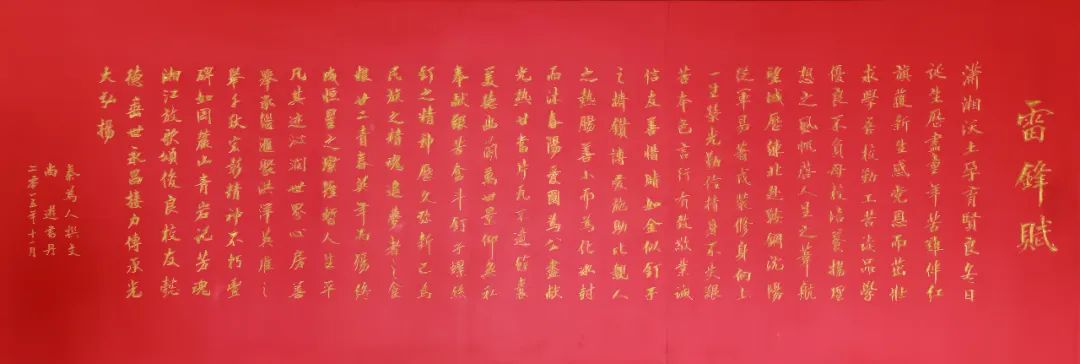 雷鋒賦
瀟湘沃土孕育賢良冬日
誕生歷盡童年苦難伴紅
旗獲新生感黨恩而茁壯
求學舌校勤工苦讀品學
優良不負母校培養揚理
想之風帆啓人生之華航
望城歷練北赴鞍鋼沈陽
從軍易著戎裝修身向上
一生榮光勤儉持身不失艱
苦本色言行有致敬業誠
信友善惜時如金似釘子
之擠鑽博愛能助比親人
之熱腸善小而為化冰封
而沐春陽愛國為公盡獻
光熱甘當片瓦不遺餘裏
美德幽蘭萬世景仰無私
奉獻艱苦奮斗釘子螺絲
釘之精神歷久弥新已為
民族之精魂追夢者之食
糧廿二青春英年為殤終
成恒星之璨璨哲人生平
凡其迹江濶世界心房善
舉家繼滙聚洪澤英雄之
舉千秋宏彰精神不朽豐
碑如固麓山青岩記芳魂
湘江放歌頌俊良校友懿
德垂世永昌接力傳承光
大弘揚
秦為人撰文
尚 遊書丹
二零二五年十一月